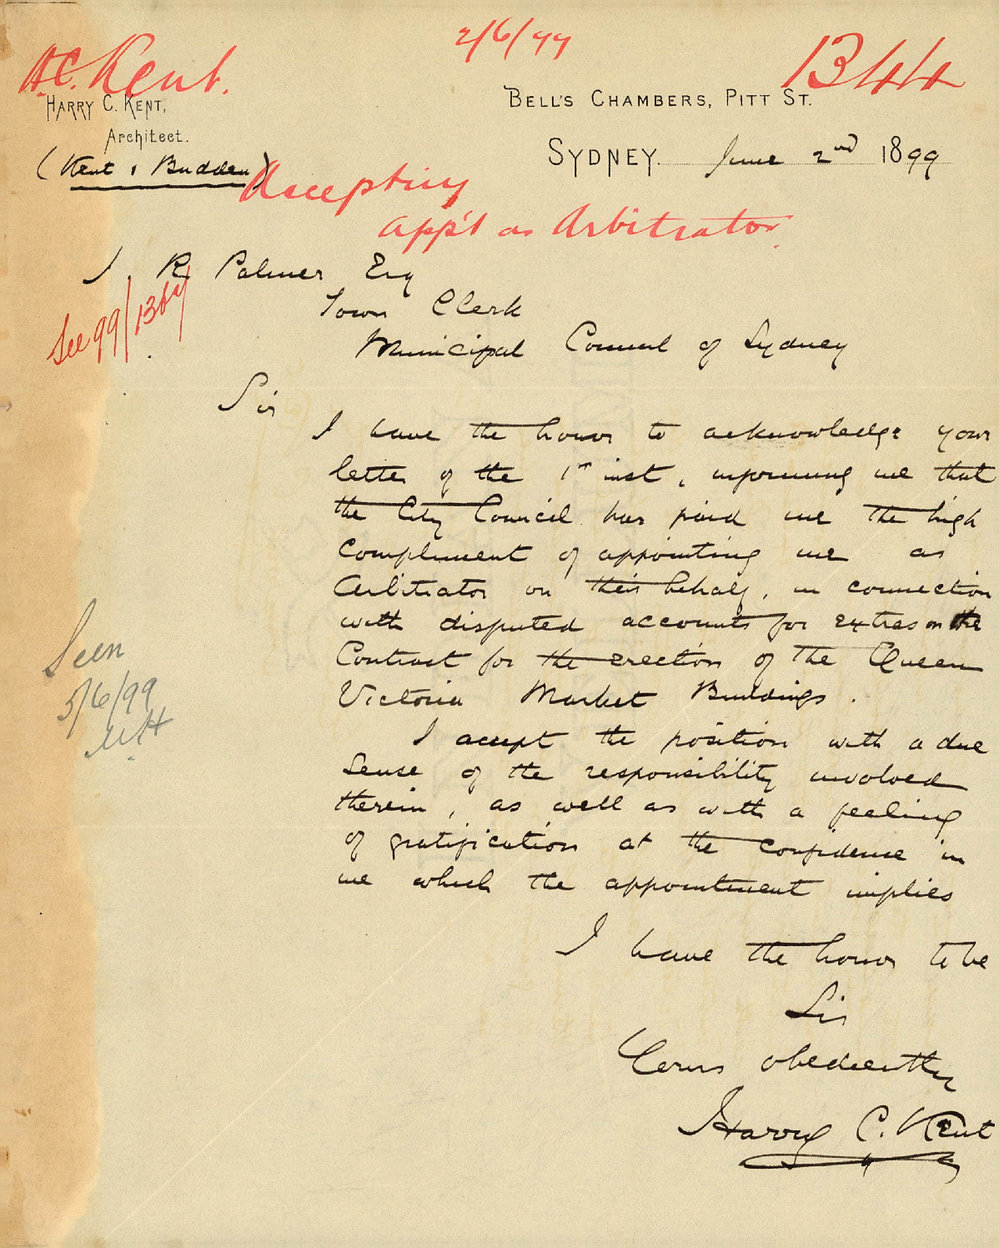 2/6/99
H.C. Kent.
1344
HARRY C. KENT,
Architect.
(Kent & Budden)
BELL'S CHAMBERS, PITT ST.
SYDNEY. June 2nd 1899
Accepting
app't as Arbitrator.
J. R. Palmer Esq
Town Clerk
Municipal Council of Sydney
See 99/1364
Sir
I have the honor to acknowledge your
letter of the 1st inst, informing me that
the City Council has paid me the high
compliment of appointing me as
Arbitrator on their behalf, in connection
with disputed accounts for extras on the
Contract for the erection of the Queen
Victoria Market Buildings.
I accept the position with a due
sense of the responsibility involved
therein, as well as with a feeling
of gratification at the confidence in
me which the appointment implies
I have the honor to be
Sir
Yours obediently
Harry C. Kent
Seen
5/6/99